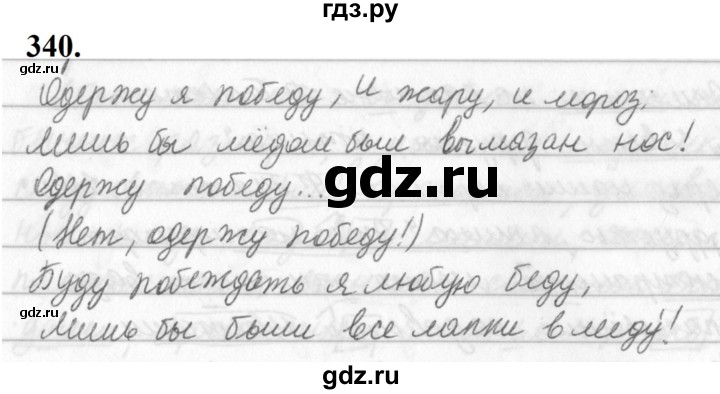 гдз.ру
340.
gdz.ru
gdz.ru
Одержу я победу, И жару, и мороз:
Лишь бы мёдом был вымазан нос!
Одержу победу...
gdz.ru
(Нет, одержу победу!)
Буду побеждать я любую беду,
Лишь бы были все лапки в меду!
gdz.ru
gdz.ru
gdz.ru